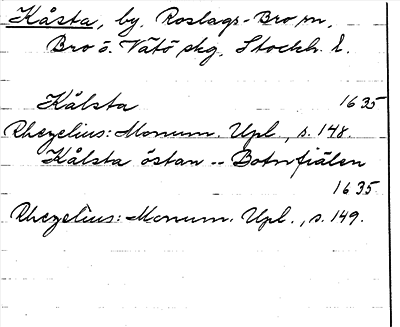 Kåsta, by. Roslags-Bro sn,
Bro o. Vätö skg. Stockh. l.
Kålsta 1635
Rhezelius: Monum. Upl., s. 148.
Kålsta östan -- Botnfiälen
1635
Rhezelius: Monum. Upl., s. 149.